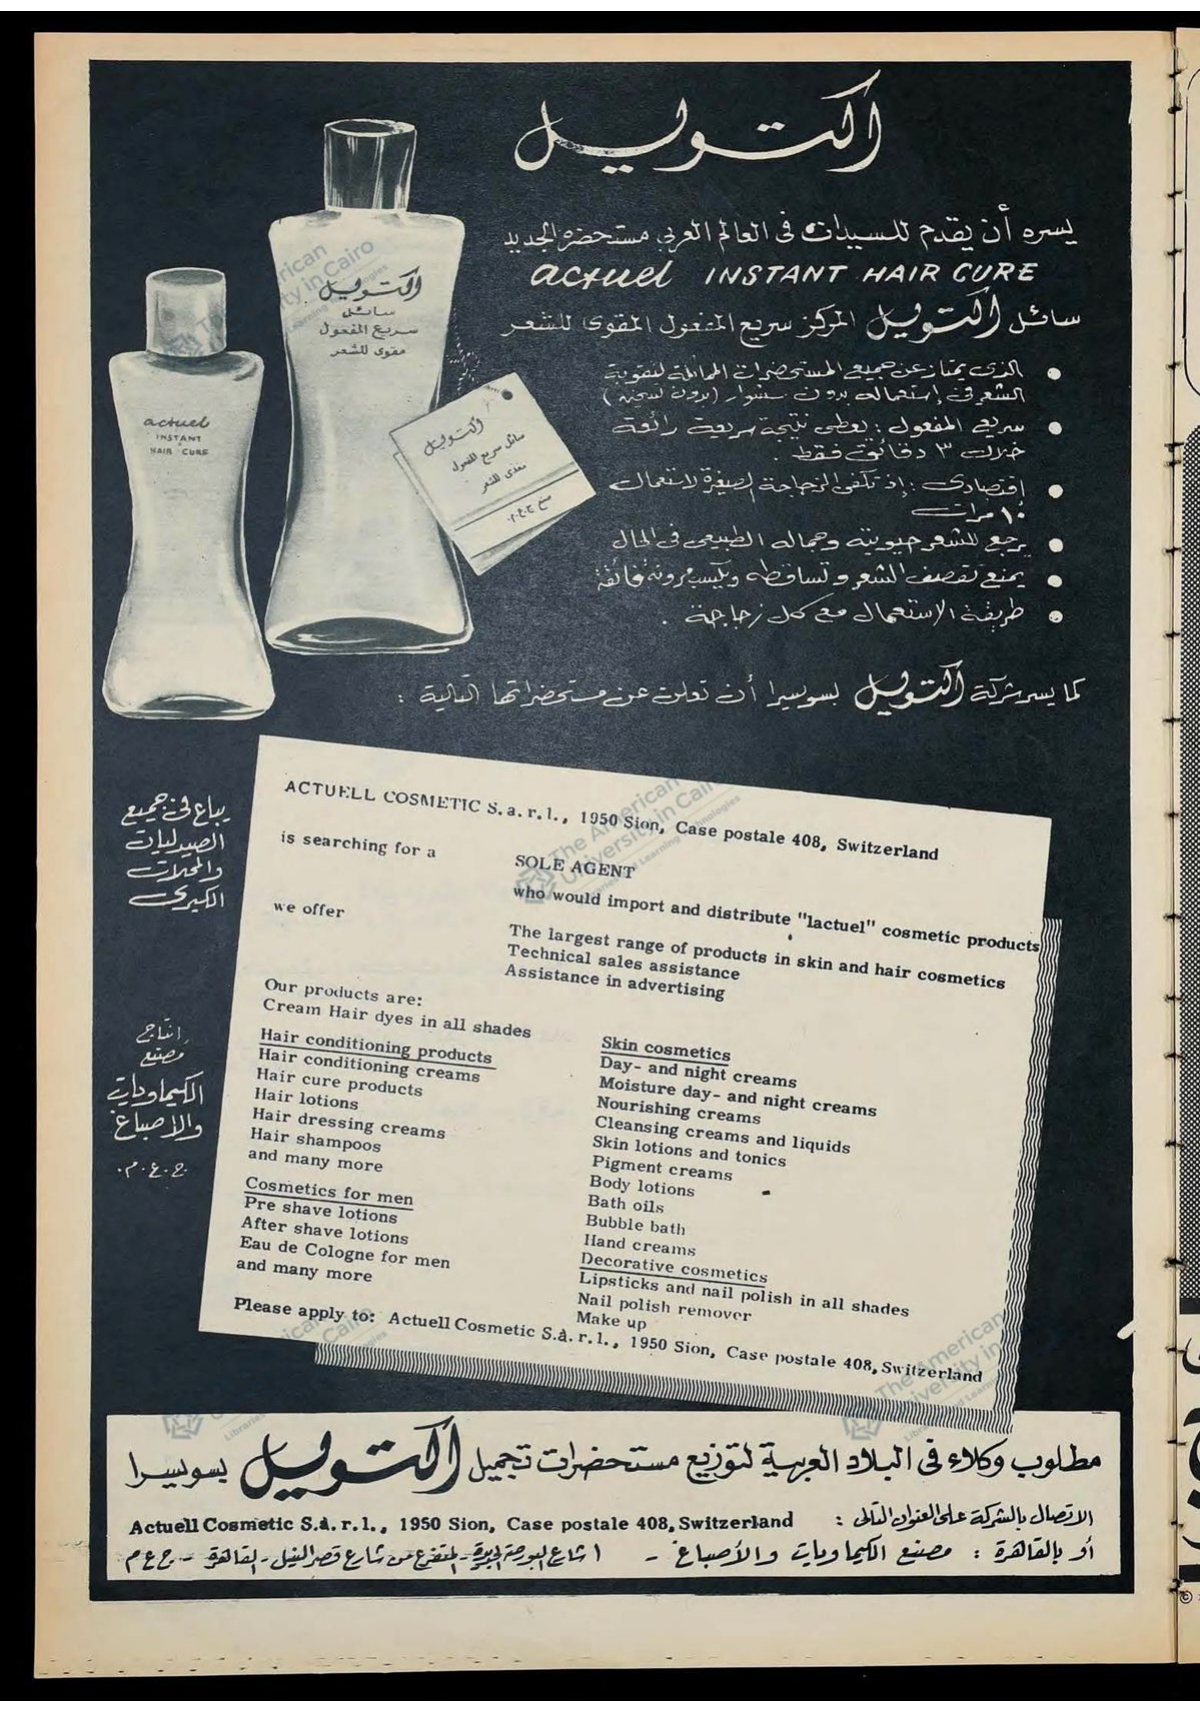 اكتويل
يسره أن يقدم للسيدات فى العالم العربى مستحضره الجديد
actuel INSTANT HAIR CURE
سائل اكتويل المركز سريع المفعول المقوى للشعر
الذى يمتاز عن جميع المستحضرات المماثلة لتقوية
الشعر فى إستعماله بدون سشوار (بدون تسخين)
سريع المفعول : يعطى نتيجة سريعة رائعة
خلال ٣ دقائق فقط .
إقتصادى : إذ تكفى الزجاجة الصغيرة لاستعمال
١٠ مرات
يرجع للشعر حيويته وجماله الطبيعى فى الحال
يمنع تقصف الشعر وتساقطه ويكسبه مرونة فائقة
طريقة الإستعمال مع كل زجاجة .
اكتويل
سائل
سريع المفعول
مقوى للشعر
actuel
INSTANT
HAIR CURE
اكتويل
سائل سريع المفعول
مغذى للشعر
صنع ج.ع.م.
كما يسر شركة اكتويل بسويسرا أن تعلن عن مستحضراتها التالية :
يباع فى جميع
الصيدليات
والمحلات
الكبرى
إنتاج
مصنع
الكيماويات
والأصباغ
ج.ع.م.
ACTUELL COSMETIC S.a.r.l., 1950 Sion, Case postale 408, Switzerland
is searching for a SOLE AGENT
who would import and distribute "lactuel" cosmetic products
we offer The largest range of products in skin and hair cosmetics
Technical sales assistance
Assistance in advertising
Our products are:
Cream Hair dyes in all shades
Hair conditioning products
Hair conditioning creams
Hair cure products
Hair lotions
Hair dressing creams
Hair shampoos
and many more
Cosmetics for men
Pre shave lotions
After shave lotions
Eau de Cologne for men
and many more
Skin cosmetics
Day- and night creams
Moisture day- and night creams
Nourishing creams
Cleansing creams and liquids
Skin lotions and tonics
Pigment creams
Body lotions
Bath oils
Bubble bath
Hand creams
Decorative cosmetics
Lipsticks and nail polish in all shades
Nail polish remover
Make up
Please apply to: Actuell Cosmetic S.à.r.l., 1950 Sion, Case postale 408, Switzerland
مطلوب وكلاء فى البلاد العربية لتوزيع مستحضرات تجميل اكتويل بسويسرا
الاتصال بالشركة على العنوان التالى : Actuell Cosmetic S.à.r.l., 1950 Sion, Case postale 408, Switzerland
أو بالقاهرة : مصنع الكيماويات والأصباغ - ١ شارع البورصة الجديدة - المتفرع من شارع قصر النيل - القاهرة - ج ع م
The American
University in Cairo
Libraries and Learning Technologies